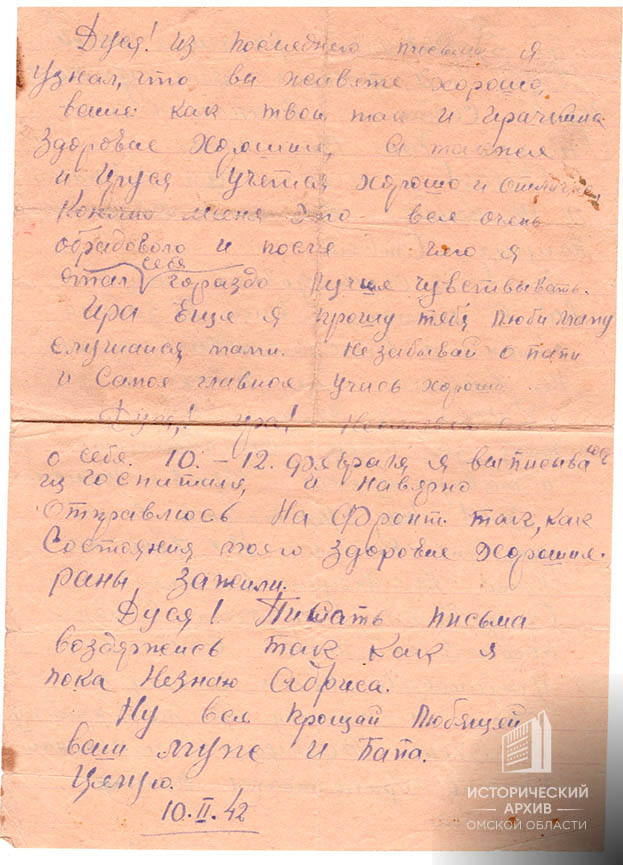 Дуся! Из последнего письма я
узнал, что вы живете хорошо,
ваше как твои так и Ирачкина
здоровие хорошии, а также
и Ируся учется хорошо и отлично,
Конечно меня это всё очень
обрадоволо и после чего я
стал себя гораздо лучше чувствывать.
Ира Ещё я прошу тебя люби маму
слушайся мами. Незабывай о папи
и Самое главноя учись хорошо.
Дуся! Ира! Немного
о себе. 10.-12. февраля я выписываюсь
из госпиталя, и Навярно
Отправлюсь На Фронт. так, как
Состояния моего здоровие хорошия.
раны, зажили.
Дуся! Писать письма
воздяржись так как я
пока Незнаю Адриса.
Ну всё прощай Любящей
ваш муж и Папа.
Цялую.
10.II.42
ИСТОРИЧЕСКИЙ
АРХИВ
ОМСКОЙ ОБЛАСТИ